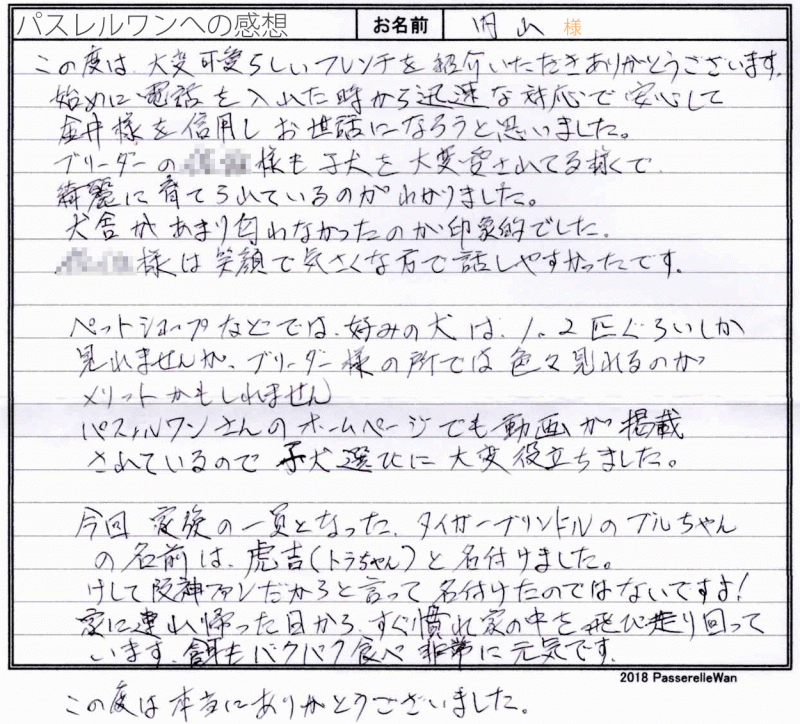 パスレルワンへの感想 お名前 円山 様
この度は、大変可愛らしいフレンチを紹介いただきありがとうございます。
始めに電話を入れた時から迅速な対応で安心して
金井様を信用しお世話になろうと思いました。
ブリーダーの 様も子犬を大変愛されてる様で
綺麗に育てられているのがわかりました。
犬舎があまり匂わなかったのが印象的でした。
様は笑顔で気さくな方で話しやすかったです。
ペットショップなどでは、好みの犬は、1、2匹ぐらいしか
見れませんが、ブリーダー様の所では色々見れるのが
メリットかもしれません
パスルワンさんのホームページでも動画が掲載
されているので子犬選びに大変役立ちました。
今回家族の一員となった、タイガーブリンドルのブルちゃん
の名前は、虎吉(トラちゃん)と名付けました。
けして阪神ファンだからと言って名付けたのではないですよ!
家に連れ帰った日から、すぐ慣れ家の中を飛び走り回って
います。餌もバクバク食べ非常に元気です。
2018 PasserelleWan
この度は本当にありがとうございました。